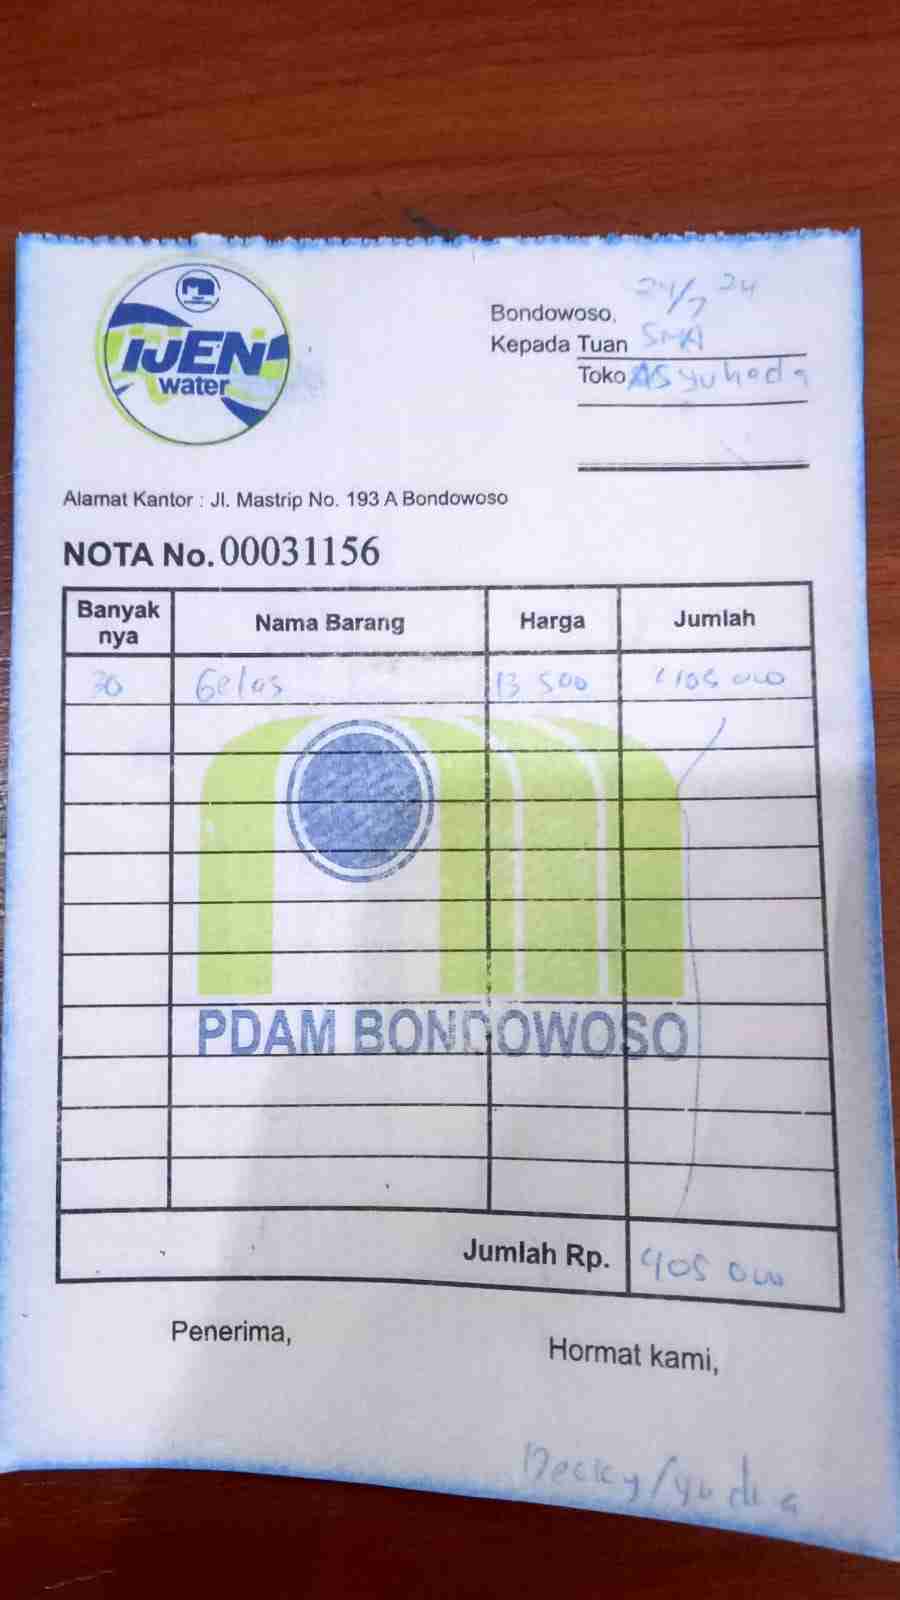 IJEN
water
Bondowoso, 24/7 24
Kepada Tuan SMA
Toko ASyuhada
Alamat Kantor : Jl. Mastrip No. 193 A Bondowoso
NOTA No. 00031156
Banyak nya Nama Barang Harga Jumlah
30 Gelas 13 500 405 000
PDAM BONDOWOSO
Jumlah Rp. 405 000
Penerima,
Hormat kami,
Decky/yudia